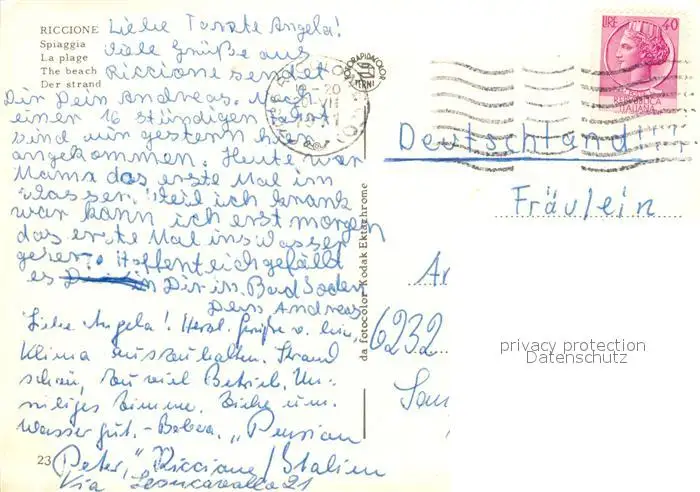 RICCIONE
Spiaggia
La plage
The beach
Der strand
Liebe Tante Angela!
Viele Grüße aus
Riccione sendet
Dir Dein Andreas. Nach
einer 16 stündigen Fahrt
sind wir gestern hier
angekommen. Heute war
Mama das erste Mal im
Wasser. Weil ich krank
war kann ich erst morgen
das erste Mal ins Wasser
gehen. Hoffentlich gefällt
es Dir in Bad Soden
Dein Andreas
Liebe Angela! Herzl. Grüße v. hier,
Klima auszuhalten. Strand
schön, zu viel Betrieb.
Zimmer.
Wasser gut. "Pension
Peter," Riccione / Italien
Via Leoncavallo 21
23
da fotocolor Kodak Ektachrome
FOTORAPIDACOLOR
TERNI
LIRE 40
REPUBBLICA
ITALIANA
Deutschland
Fräulein
6232
privacy protection
Datenschutz